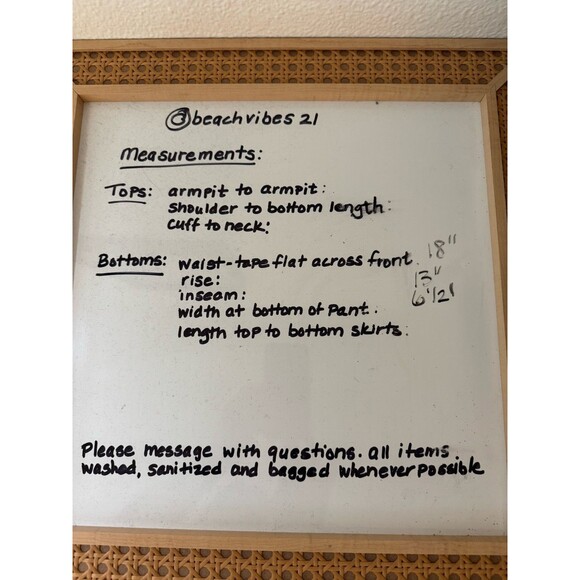 @beachvibes 21
Measurements:
Tops: armpit to armpit:
shoulder to bottom length:
cuff to neck:
Bottoms: waist-tape flat across front. 18"
rise: 13"
inseam: 6 1/2"
width at bottom of pant.
length top to bottom skirts:
Please message with questions. all items
washed, sanitized and bagged whenever possible